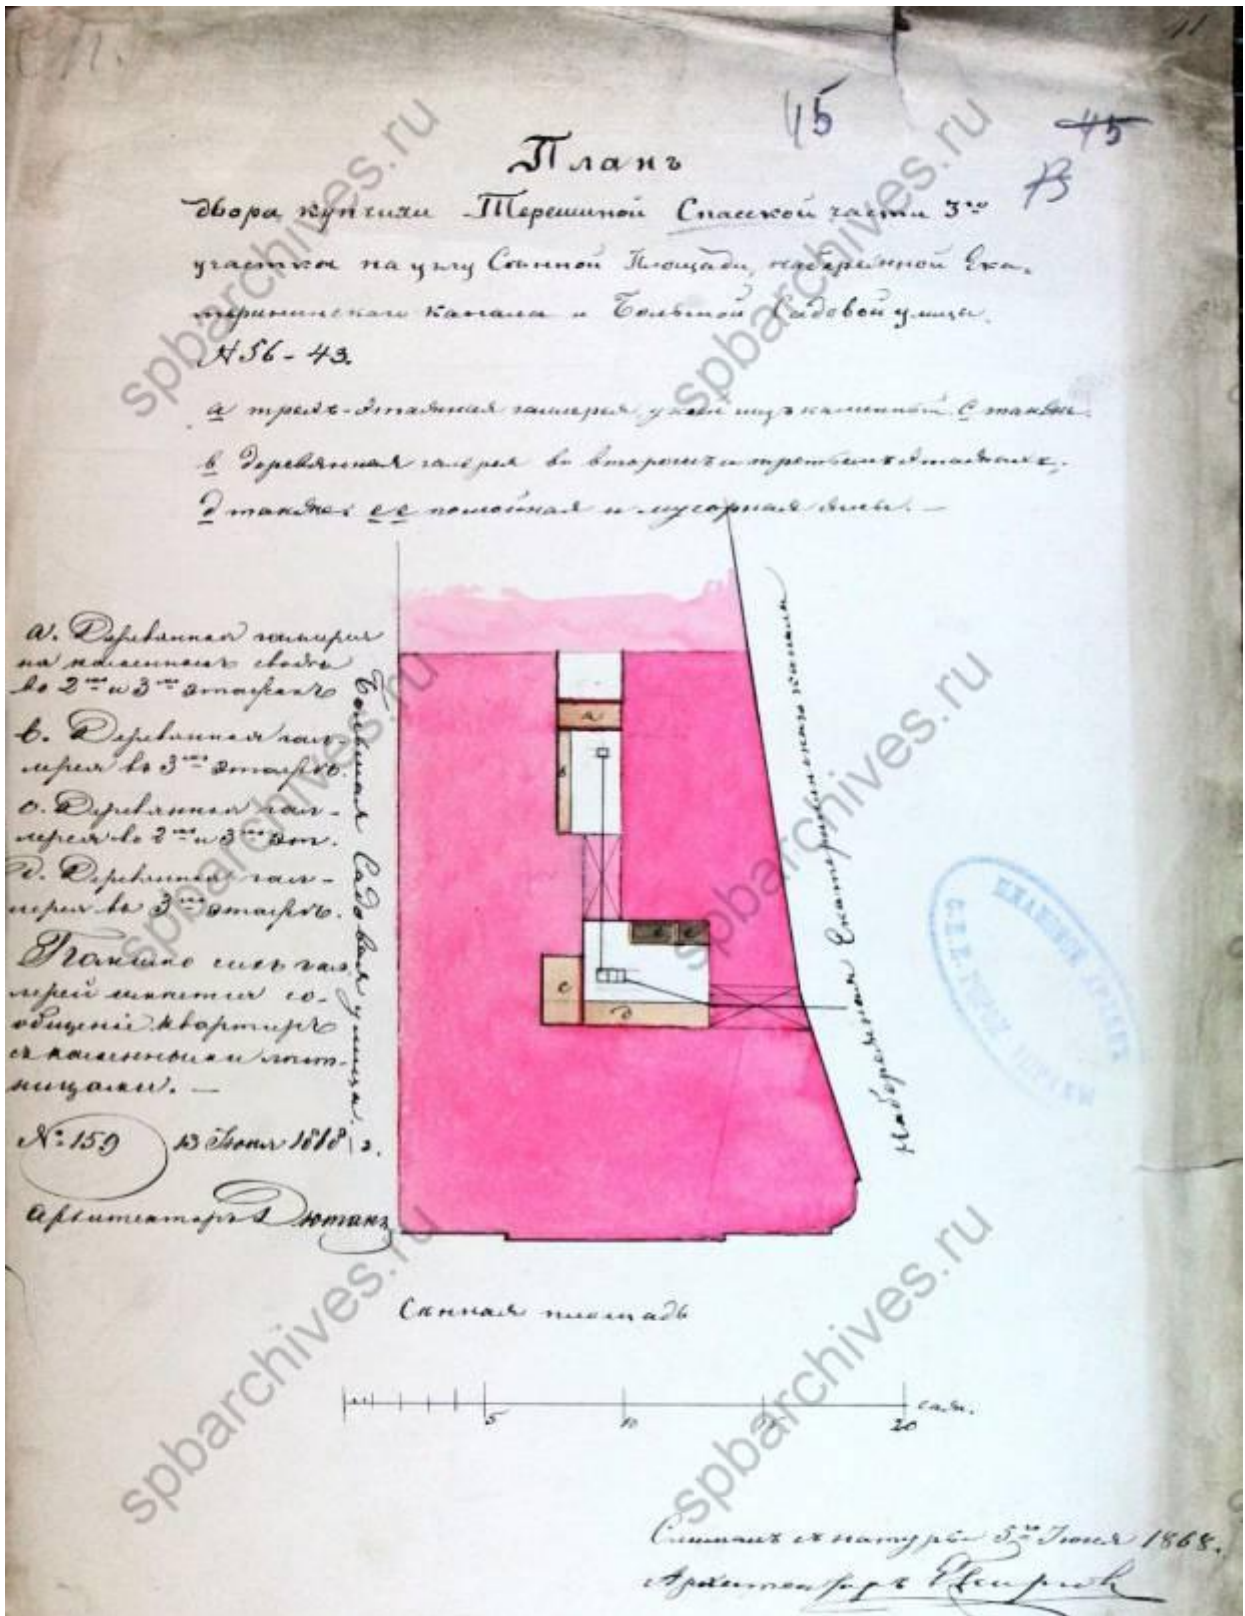 11
45
45
Планъ
двора купчихи Терешиной Спасской части 3го
участка на углу Сѣнной Площади, набережной Ека-
терининскаго канала и Большой Садовой улицы.
№ 56-43.
а трехъ-этажная галлерея у коей низъ каменный с также
в деревянная галерея во второмъ и третьемъ этажахъ,
д также: ее помойная и мусорная ямы. —
а. Деревянная галлерея
на каменномъ сводѣ
во 2мъ и 3мъ этажахъ
в. Деревянная гал-
лерея въ 3мъ этажѣ.
с. Деревянная гал-
лерея во 2мъ и 3мъ эт.
д. Деревянная гал-
лерея въ 3мъ этажѣ.
сихъ гал-
лерей имѣется со-
общеніе квартиръ
съ каменными лѣст-
ницами. —
№ 159 13 Іюня 1868 г.
Архитекторъ
Большая Садовая улица.
Набережная Екатерининскаго канала
а
в
е е
с
д
Сѣнная площадь
5 10 15 20 саж.
Снималъ съ натуры 5го Іюня 1868.
Архитекторъ
spbarchives.ru
spbarchives.ru
spbarchives.ru
spbarchives.ru
spbarchives.ru
spbarchives.ru